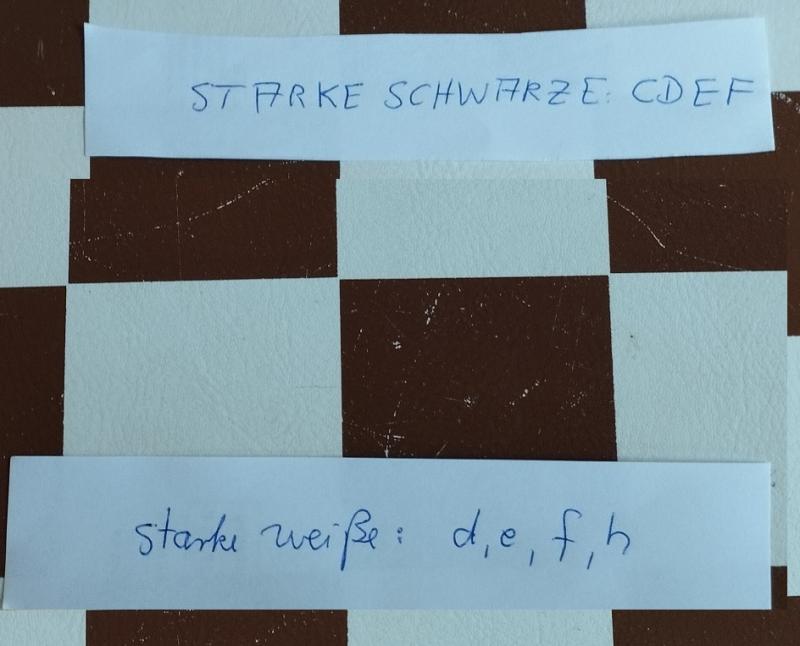 STARKE SCHWARZE: CDEF
starke weiße: d, e, f, h